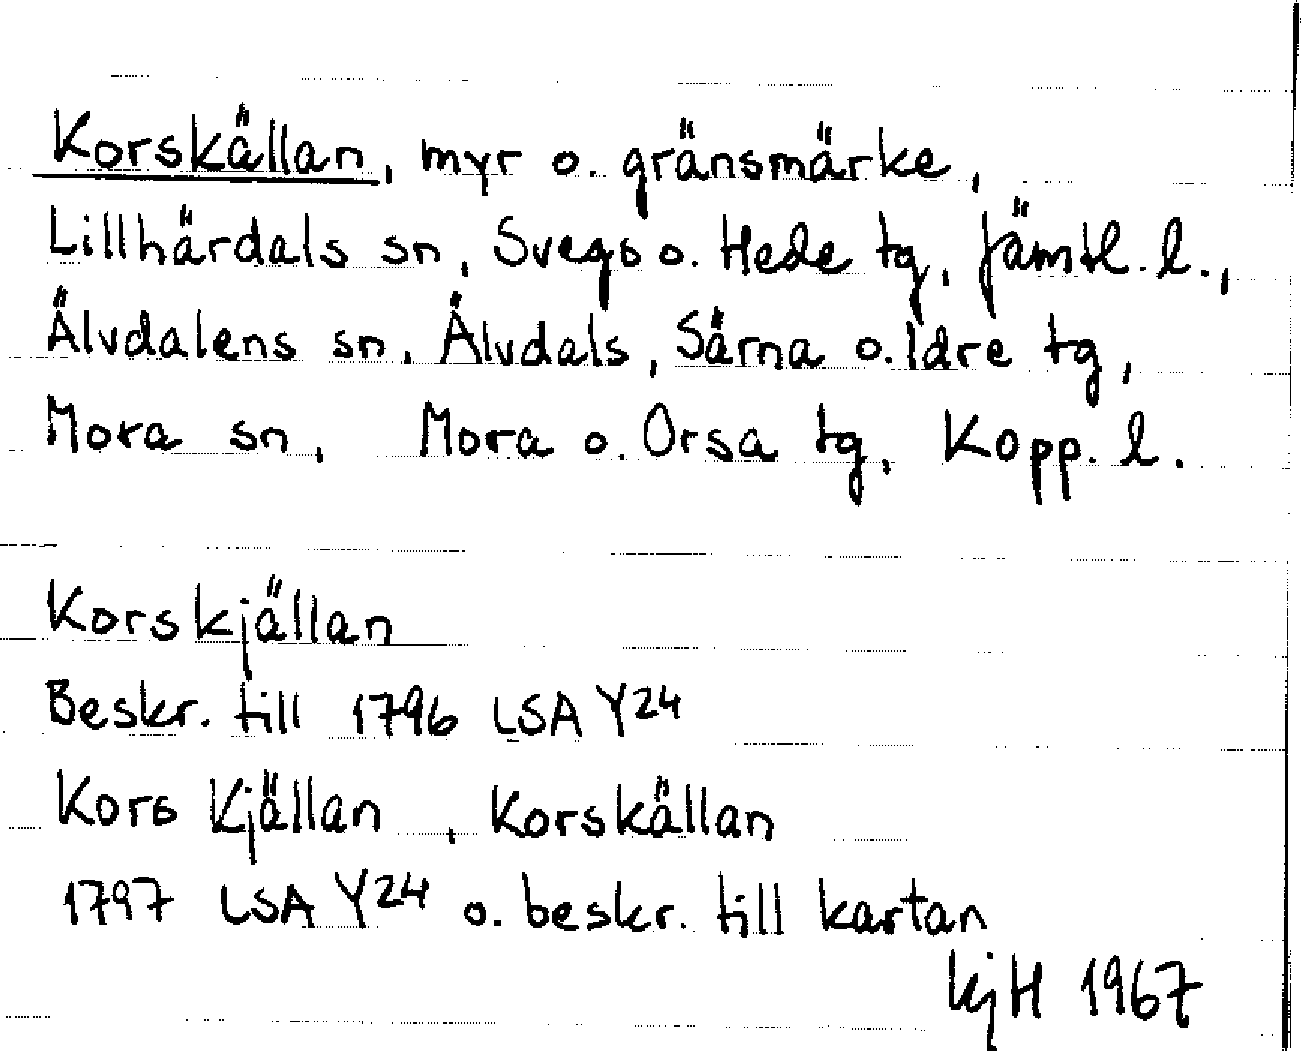 Korskällan, myr o. gränsmärke,
Lillhärdals sn, Svegs o. Hede tg, Jämtl. l.,
Älvdalens sn, Älvdals, Särna o. Idre tg,
Mora sn, Mora o. Orsa tg, Kopp. l.
Korskjällan
Beskr. till 1796 LSA Y24
Kors Kjällan, Korskällan
1797 LSA Y24 o. beskr. till kartan
KjH 1967